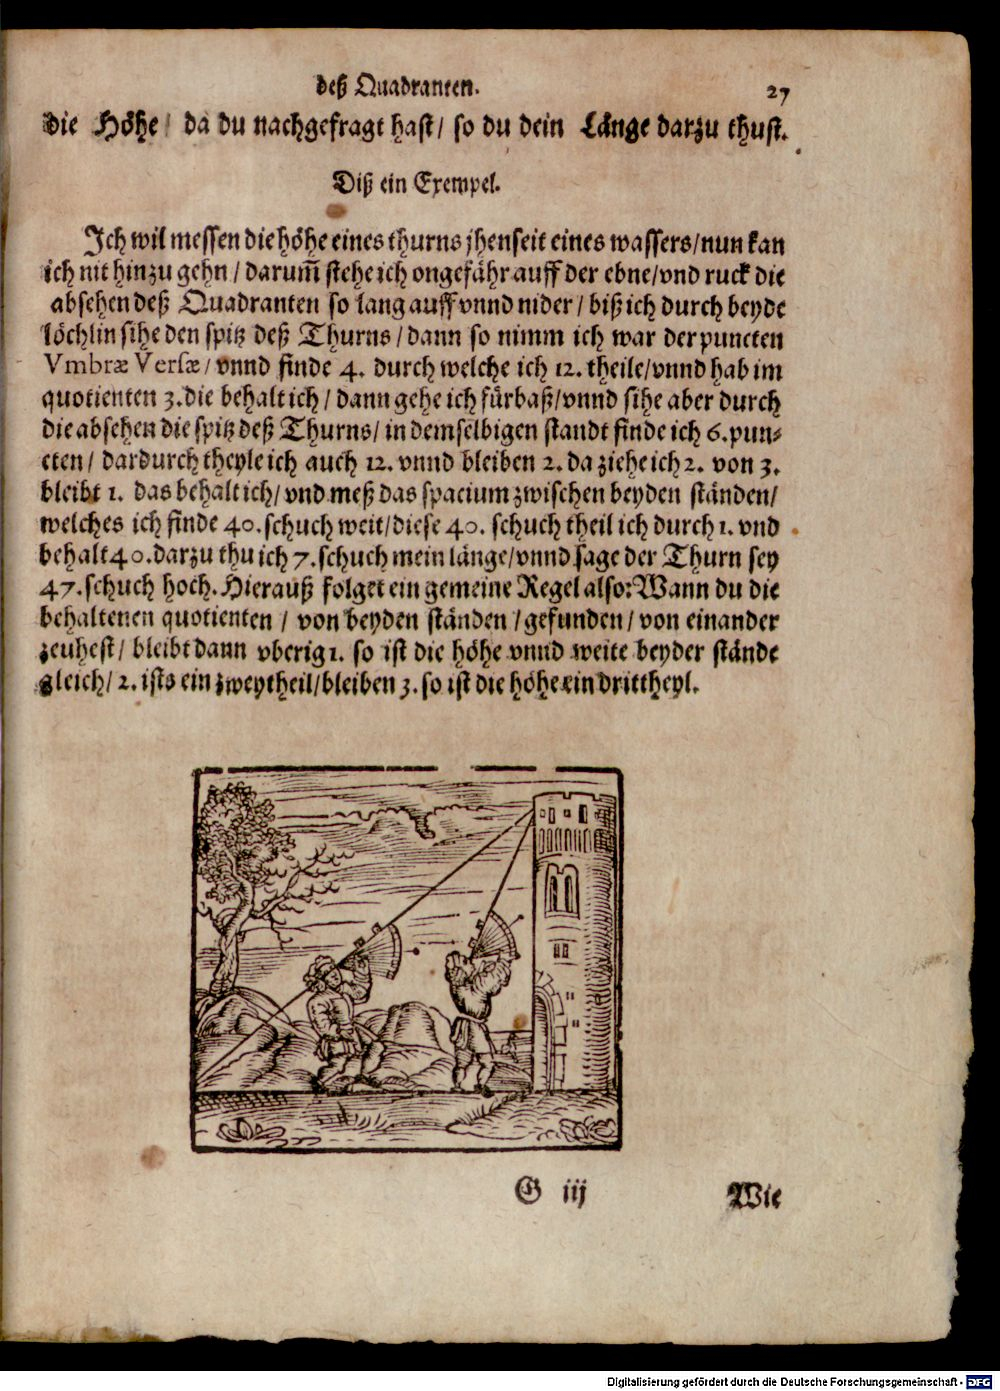 deß Quadranten. 27
die Höhe / da du nachgefragt hast / so du dein Länge darzu thust.
Diß ein Exempel.
Ich wil messen die höhe eines thurns jhenseit eines wassers / nun kan
ich nit hinzu gehn / darum̃ stehe ich ongefähr auff der ebne / vnd ruck die
absehen deß Quadranten so lang auff vnnd nider / biß ich durch beyde
löchlin sihe den spitz deß Thurns / dann so nimm ich war der puncten
Vmbræ Versæ / vnnd finde 4. durch welche ich 12. theile / vnnd hab im
quotienten 3. die behalt ich / dann gehe ich fürbaß / vnnd sihe aber durch
die absehen die spitz deß Thurns / in demselbigen standt finde ich 6. pun-
cten / dardurch theyle ich auch 12. vnnd bleiben 2. da ziehe ich 2. von 3.
bleibt 1. das behalt ich / vnd meß das spacium zwischen beyden ständen /
welches ich finde 40. schuch weit / diese 40. schuch theil ich durch 1. vnd
behalt 40. darzu thu ich 7. schuch mein länge / vnnd sage der Thurn sey
47. schuch hoch. Hierauß folget ein gemeine Regel also: Wann du die
behaltenen quotienten / von beyden ständen / gefunden / von einander
zeuhest / bleibt dann vberig 1. so ist die höhe vnnd weite beyder stände
gleich / 2. ists ein zweytheil / bleiben 3. so ist die höhe ein drittheyl.
G iij Wie
Digitalisierung gefördert durch die Deutsche Forschungsgemeinschaft - DFG